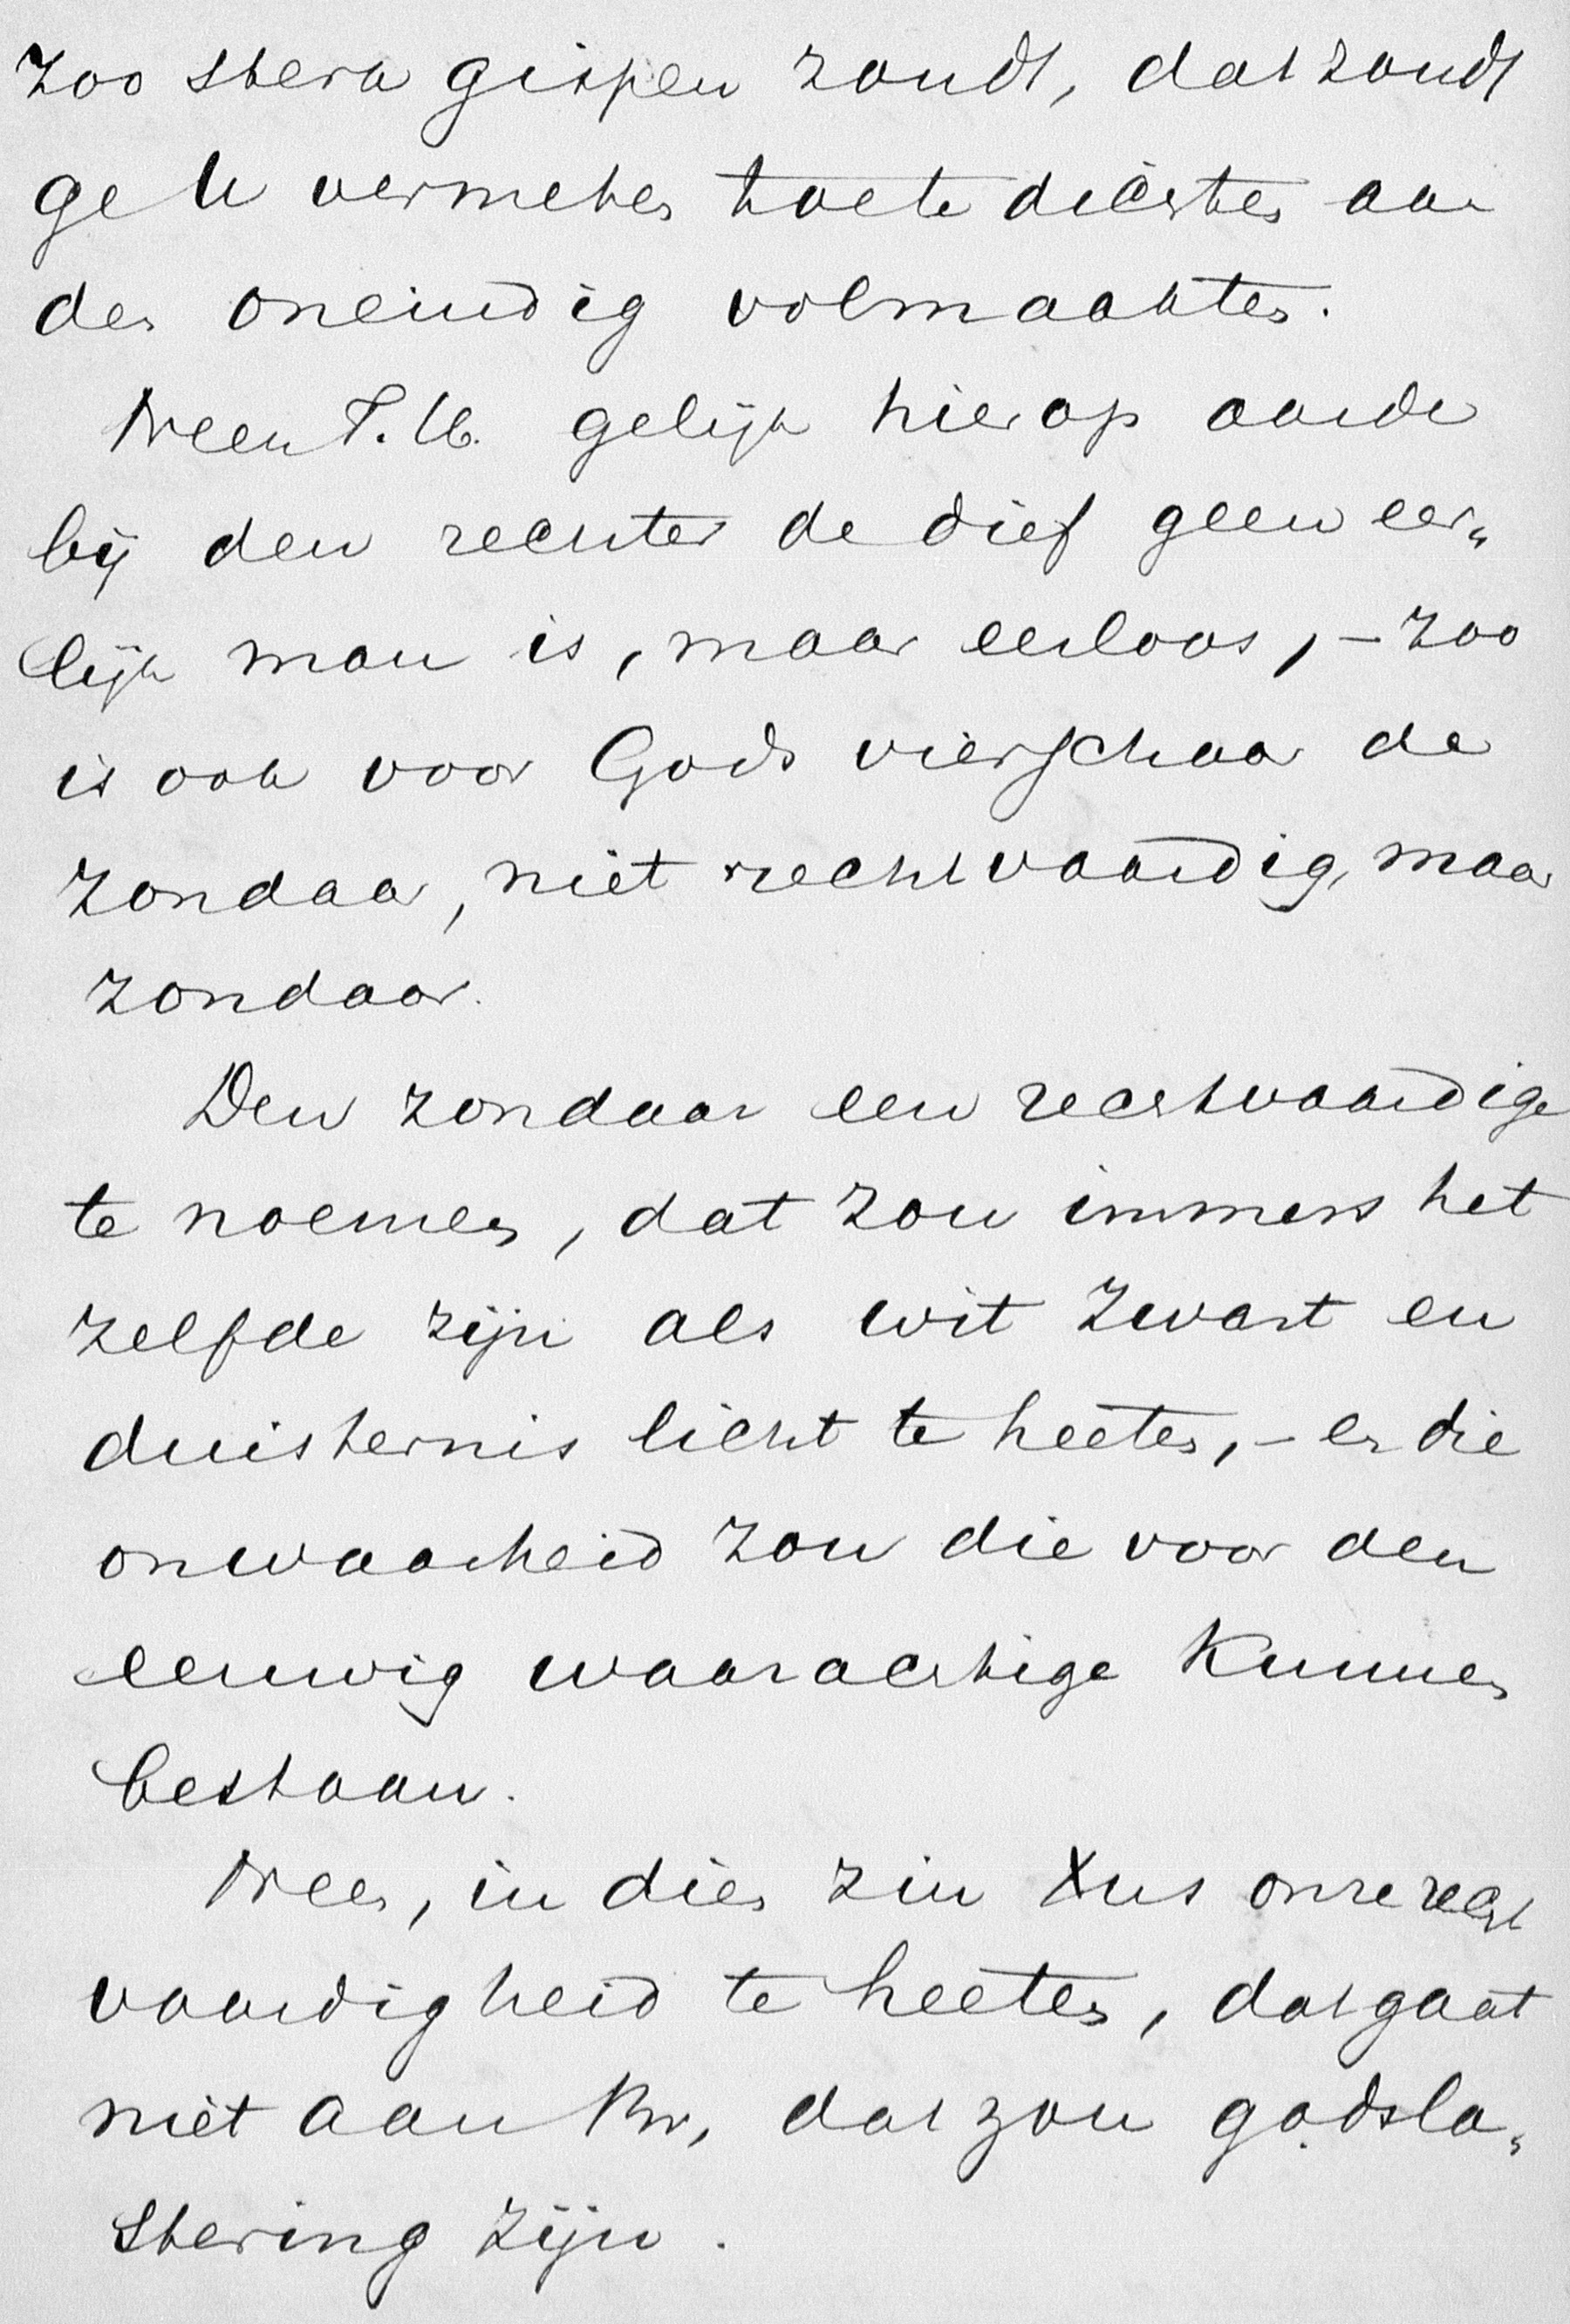 zoo sterk gispen zoudt, dat zoudt
ge U vermeten toe te dichten aan
den oneindig volmaakten.
Neen T. U. gelijk hier op aarde
bij den rechter de dief geen eer„
lijk man is, maar eerloos, – zoo
is ook voor Gods vierschaar de
zondaar, niet rechtvaardig, maar
zondaar.
Den zondaar een rechtvaardige
te noemen, dat zou immers het
zelfde zijn als wit zwart en
duisternis licht te heeten, – en die
onwaarheid zou die voor den
eeuwig waarachtige kunnen
bestaan.
Neen, in dien zin Xus onze recht
vaardigheid te heeten, dat gaat
niet aan Br, dat zou godsla„
stering zijn.